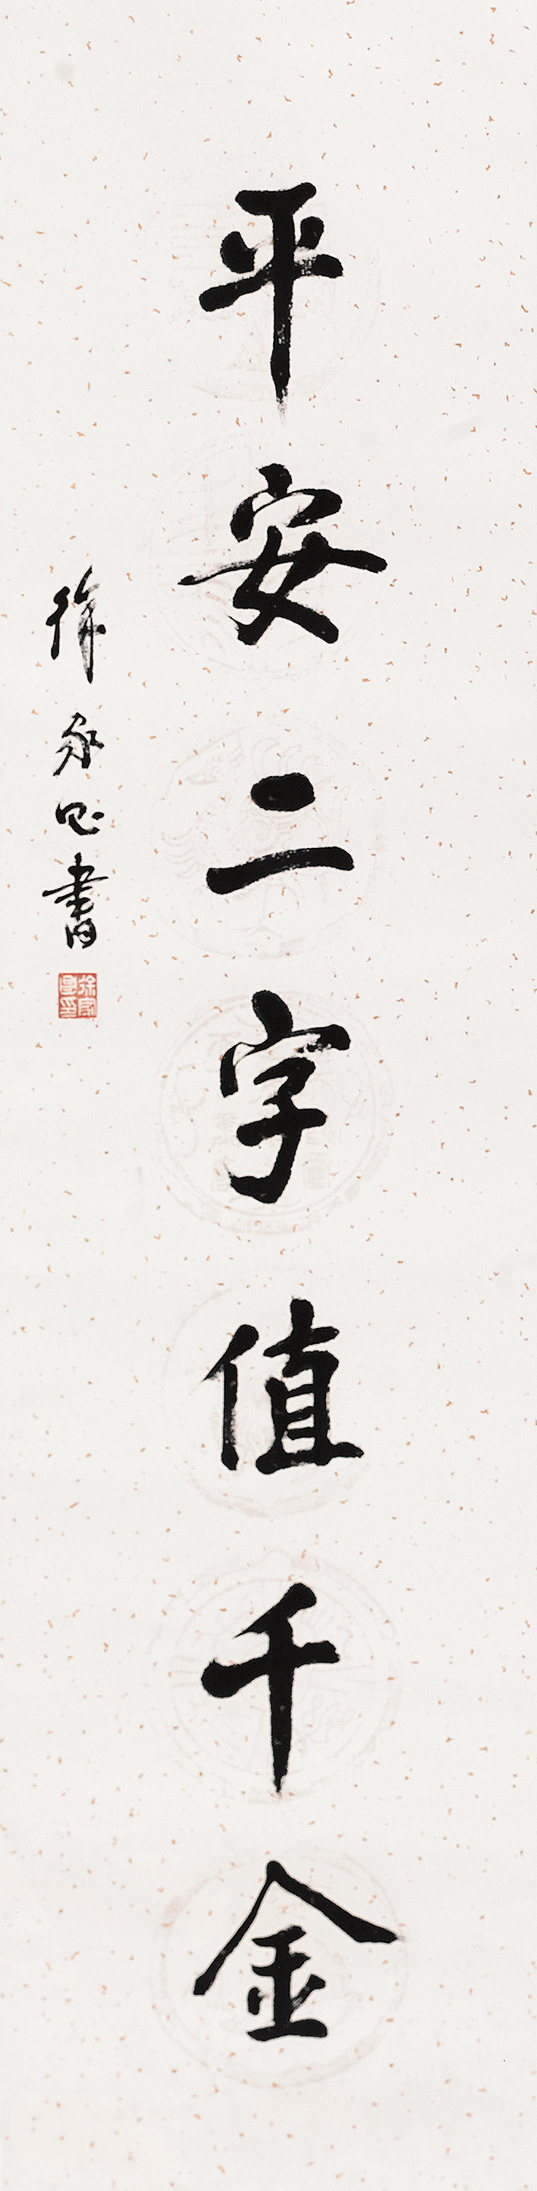 平安二字值千金
徐家昌書